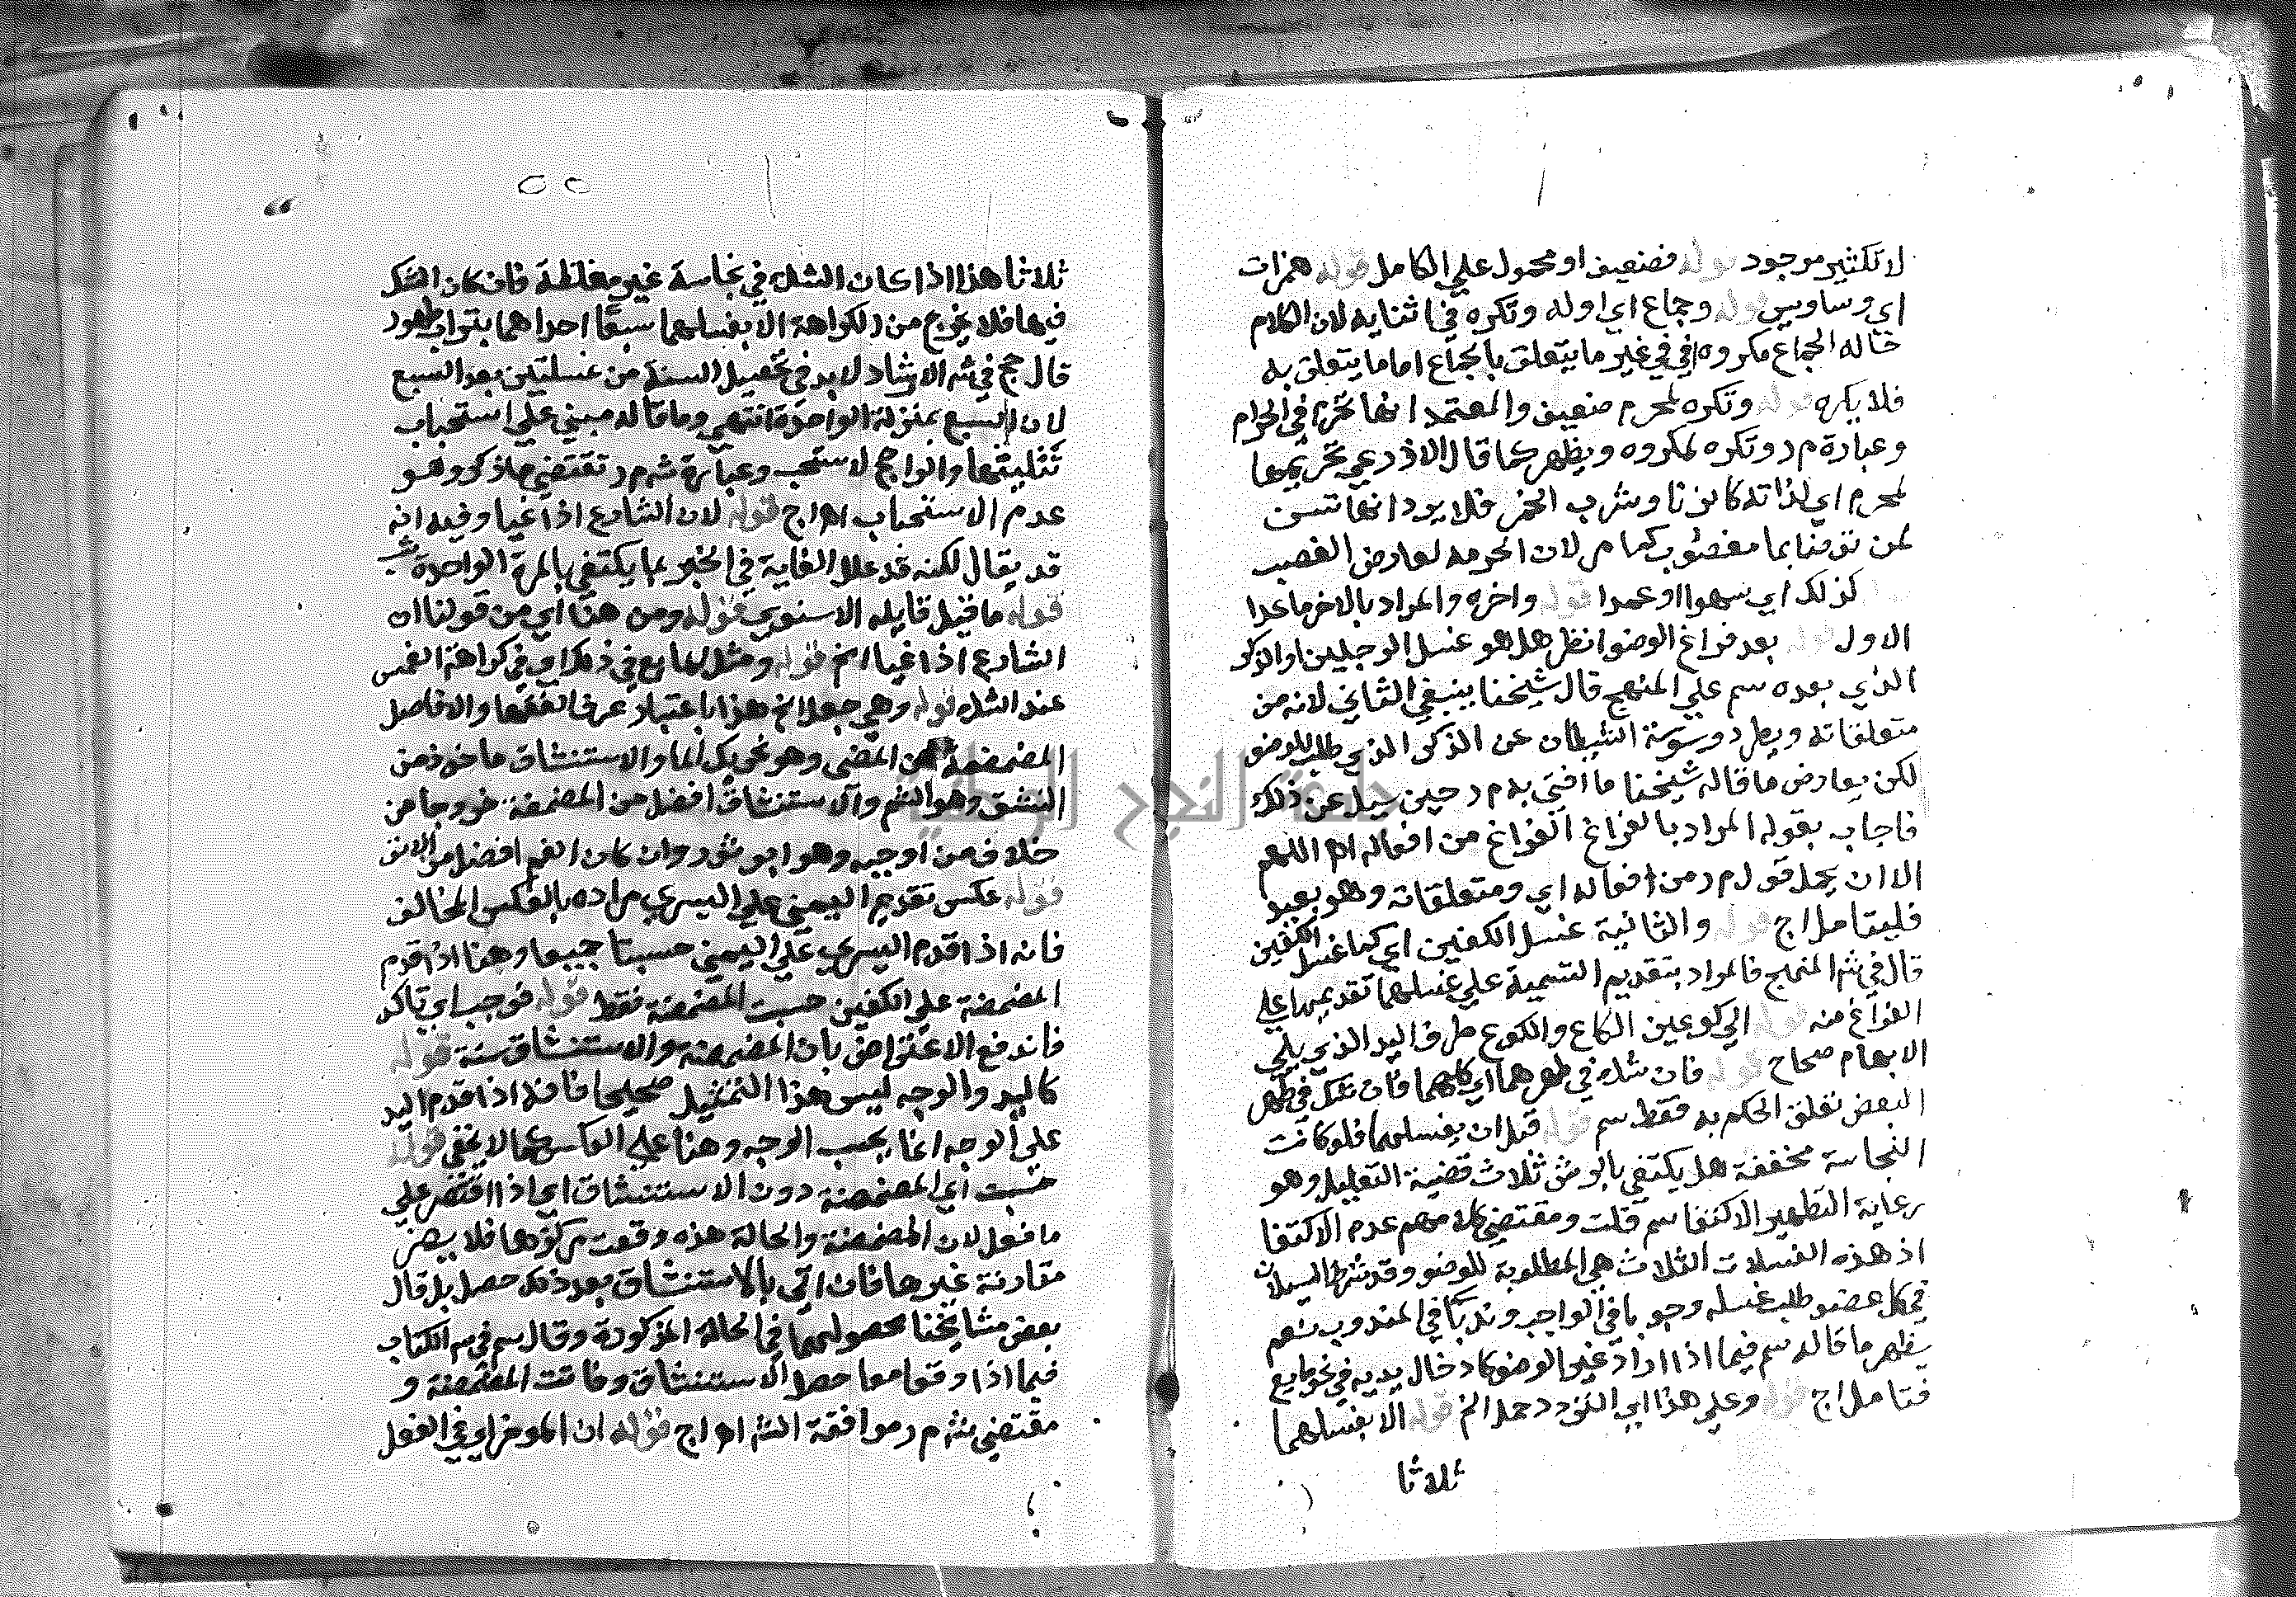 لا تكثير موجود قوله فضعيف او محمول علي الكامل قوله همزات
اي وساويس قوله وجماع اي اوله وتكره في اثنايه لان الكلام
حاله الجماع مكروه اي في غير ما يتعلق بالجماع اما ما يتعلق به
فلا يكره قوله وتكره لمحرم ضعيف والمعتمد انها تحرم في الحرام
وعبارة م ر وتكره لمكروه ويظهر كما قال الاذرعي تحريمها
لمحرم اي لذاته كالزنا وشرب الخمر فلا يرد انها تسن
لمن توضا بما مغصوب كما مر لان الحرمه لعارض الغصب
كذلك اي سهوا او عمدا قوله واخره والمراد بالاخر ما عدا
الاول قوله بعد فراغ الوضوا نظر هل هو غسل الرجلين او الذكر
الذي بعده سم علي المنهج قال شيخنا ينبغي الثاني لانه من
متعلقاته ويطرد وسوسة الشيطان عن الذكر الذي طلب للوضو
لكن يعارض ما قاله شيخنا ما افتي به م ر حين سيل عن ذلك
فاجاب بقوله المراد بالفراغ الفراغ من افعاله اه اللهم
الا ان يحمل قول م ر من افعاله اي ومتعلقاته وهو بعيد
فليتامل اج قوله والثانية غسل الكفين اي كما غسل الكفين
قال في شر المنهج فالمراد بتقديم التسمية علي غسلهما تقديمها علي
الفراغ منه قوله الي كوعين الكاع والكوع طرف اليد الذي يلي
الابهام صحاح قوله فان شك في طهرهما اي كلهما فان شك في طهر
البعض تعلق الحكم به فقط سم قوله قبل ان يغسلهما فلو كانت
النجاسة مخففة هل يكتفي بالرش ثلاث قضية التعليل وهو
رعاية التطهير الاكتفا سم قلت ومقتضي كلامهم عدم الاكتفا
اذ هذه الغسلات الثلاث هي المطلوبة للوضو وقد شرط السيلان
في كل عضو طلب غسله وجوبا في الواجب وندبا في المندوب نعم
يظهر ما قاله سم فيما اذا اراد غير الوضو كادخال يديه في نحو مايع
فتامل اج قوله وعلي هذا اي التردد حمل الخ قوله الا بغسلهما
ثلاثا
ثلاثا هذا اذا كان الشك في نجاسة غير مغلظة فان كان الشك
فيها فلا يخرج من الكراهة الا بغسلهما سبعا احداهما بتراب طهور
قال حج في شر الارشاد لا بد في تحصيل السنة من غسلتين بعد السبع
لان السبع بمنزلة الواحدة انتهي وما قاله مبني علي استحباب
تثليثها والراجح لا ستحب وعبارة شر م ر تقتضي ما ذكر وهو
عدم الاستحباب اه اج قوله لان الشارع اذا غيا وفيه انه
قد يقال لكنه قد علل الغاية في الخبر بما يكتفي بالمرة الواحدة
قوله ما قيل قايله الاسنوي قوله ومن هنا اي من قولنا ان
الشارع اذا غيا الخ قوله ومثل المايع في ذلك اي في كراهة الغمس
عند الشك قوله وهي جعل الخ هذا باعتبار عرف الفقها والا فاصل
المضمضة من المضي وهو تحريك الما والاستنشاق ماخوذ من
النشق وهو الشم والاستنشاق افضل من المضمضة خروجا من
خلاف من اوجبه وهو ابو ثور وان كان الفم افضل من الانف
قوله عكس تقديم اليمني علي اليسري مراده بالعكس المخالف
فانه اذا قدم اليسري علي اليمني حسبتا جميعا وهنا اذا قدم
المضمضة علي الكفين حسبت المضمضة فقط قوله فوجب اي تاكد
فاندفع الاعتراض بان المضمضة والاستنشاق سنة قوله
كاليد والوجه ليس هذا التمثيل صحيحا فانه اذا قدم اليد
علي الوجه انما يحسب الوجه وهنا علي العكس كما لا يخفي قوله
حسبت اي المضمضة دون الاستنشاق اي اذا اقتصر علي
ما فعل لان المضمضة والحالة هذه وقعت مركزها فلا يضر
مقارنة غيرها فان اتي بالاستنشاق بعد ذلك حصل بل قال
بعض مشايخنا بحصولهما في الحالة المذكورة وقال سم في شر الكتاب
فيما اذا وقعا معا حصل الاستنشاق وفاتت المضمضة و
مقتضي شر م ر موافقة الش اه اج قوله ان الموخر اي في الفعل